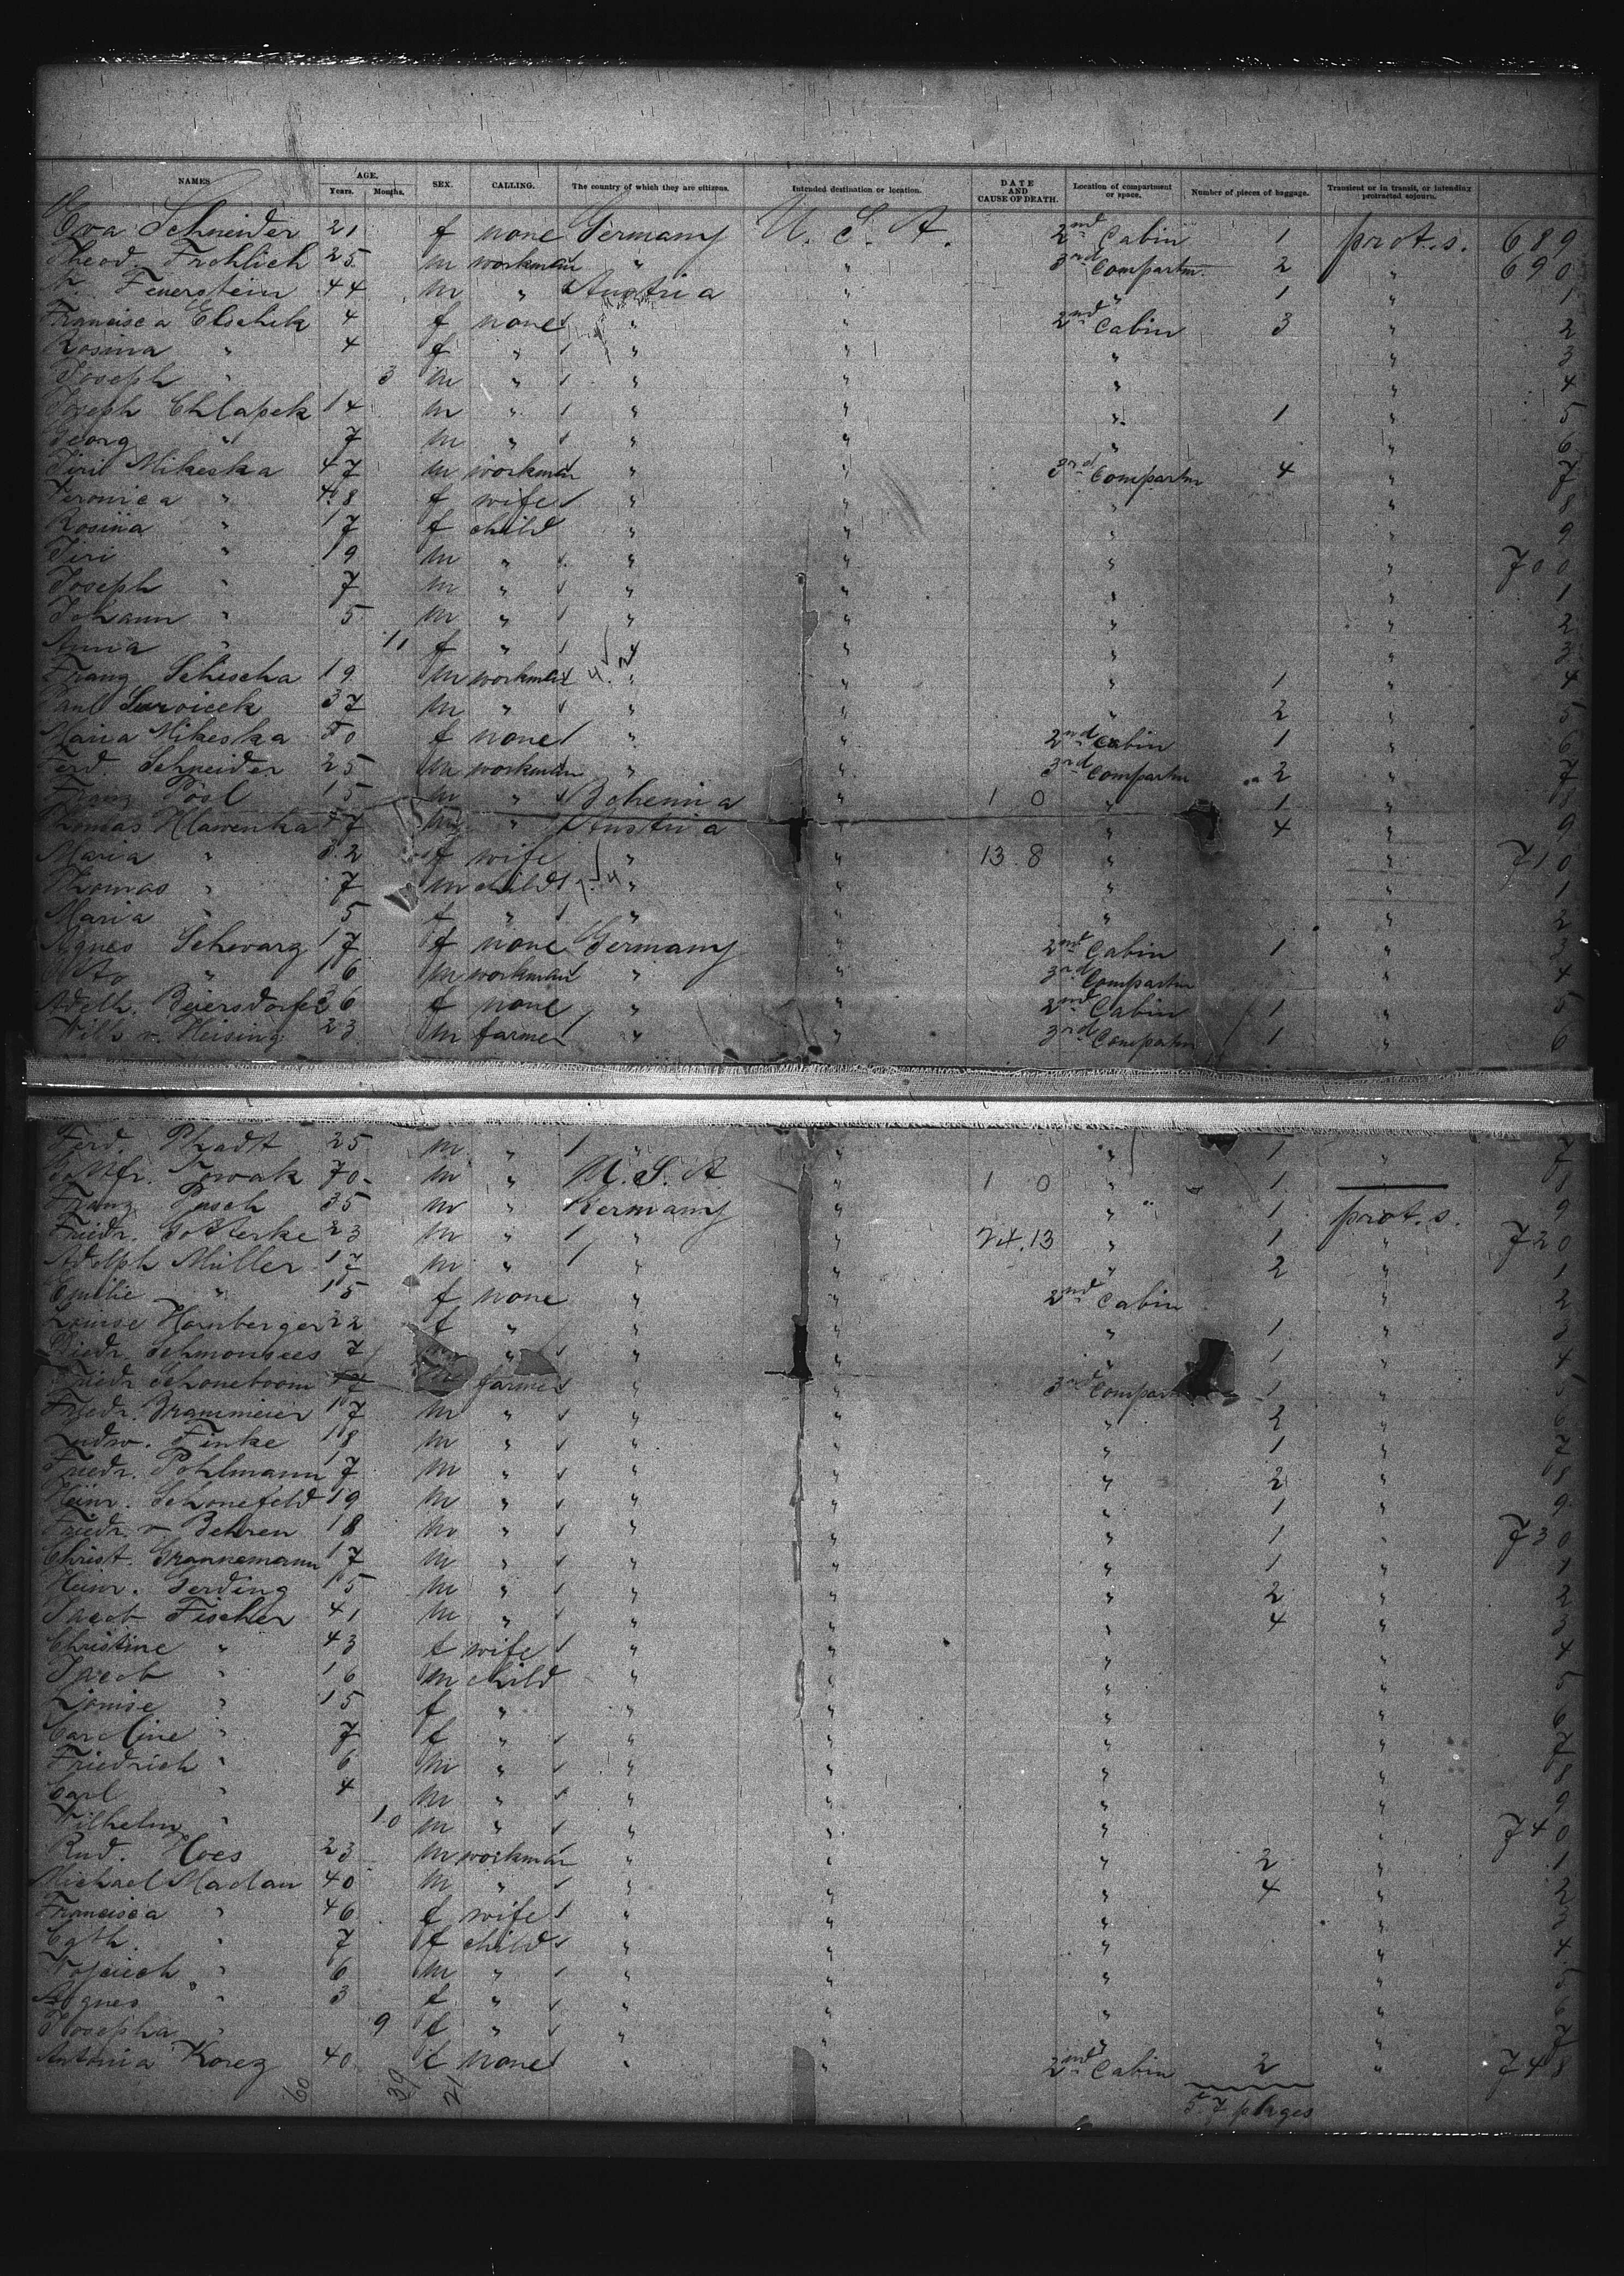 NAMES AGE. Years. Months. SEX. CALLING. The country of which they are citizens. Intended destination or location. DATE AND CAUSE OF DEATH. Location of compartment or space. Number of pieces of baggage. Transient or in transit, or intending protracted sojourn.
Eva Schneider 21 f none Germany U. S. A. 2nd Cabin 1 prot. s. 689
Theod. Frohlich 25 m workman " " 3rd Compartm. 2 " 690
Feuerstein 44 m " Austria " " 1 " 1
Francisca Elschik 4 f none " " 2nd Cabin 3 " 2
Rosina " 4 f " " " " " 3
Joseph " 3 m " " " " " 4
Joseph Chlapek 14 m " " " " 1 " 5
Georg " 7 m " " " " " 6
Jiri Mikeska 47 m workman " " 3rd Compartm 4 " 7
Veronica " 48 f wife " " " " 8
Rosina " 17 f child " " " " 9
Jiri " 19 m " " " " " 700
Joseph " 7 m " " " " " 1
Johann " 5 m " " " " " 2
Anna " 11 f " " " " " 3
Franz Schischa 19 m workman " " " 1 " 4
Paul 37 m " " " " 2 " 5
Maria Mikeska 50 f none " " 2nd Cabin 1 " 6
Ferd. Schneider 25 m workman " " 3rd Compartm 2 " 7
Franz Pösl 15 m " Bohemia " 1 0 " 1 " 8
Thomas Hlavenka 37 m " Austria " " 4 " 9
Maria " 32 f wife " " 13 8 " " 710
Thomas " 7 m child " " " " 1
Maria " 5 f " " " " " 2
Agnes Schwarz 17 f none Germany " 2nd Cabin 1 " 3
Otto " 16 m workman " " 3rd Compartm " 4
Adelh. Beiersdorfer 26 f none " " 2nd Cabin 1 " 5
Wilh. v. Heising 23 m farmer " " 3rd Compartm 1 " 6
Ferd. 25 m " " " " 1 " 7
Nowak 70 m " U. S. A " 1 0 " 1 8
Franz Pasch 35 m " Germany " " 1 prot. s. 9
Friedr. Gotterke 23 m " " " 24.13 " 1 " 720
Adolph Müller 17 m " " " " 2 " 1
Emilie " 15 f none " " 2nd Cabin " 2
Louise Hornberger 22 f " " " " 1 " 3
Diedr. Schmonsees 7 " " " " 1 " 4
Friedr. Schoneboom 17 m farmer " " 3rd Compartm 1 " 5
Friedr. Brammeier 17 m " " " " 2 " 6
Ludw. Finke 18 m " " " " 1 " 7
Friedr. Pohlmann 17 m " " " " 2 " 8
Heinr. Schonefeld 19 m " " " " 1 " 9
Friedr. v. Behren 18 m " " " " 1 " 730
Christ. Grannemann 17 m " " " " 1 " 1
Heinr. Gerding 15 m " " " " 2 " 2
Jacob Fischer 41 m " " " " 4 " 3
Christine " 43 f wife " " " " 4
Jacob " 16 m child " " " " 5
Louise " 15 f " " " " " 6
Caroline " 7 f " " " " " 7
Friedrich " 6 m " " " " " 8
Carl " 4 m " " " " " 9
Wilhelm " 10 m " " " " " 740
Rud. Hoes 23 m workman " " " 2 " 1
Michael Maclan 40 m " " " " 4 " 2
Francisca " 46 f wife " " " " 3
Cath. " 7 f child " " " " 4
Vojciech " 6 m " " " " " 5
Agnes " 3 f " " " " " 6
Josepha " 9 f " " " " " 7
Antonia Korez 40 f none " " 2nd Cabin 2 " 748
60 39 21 57